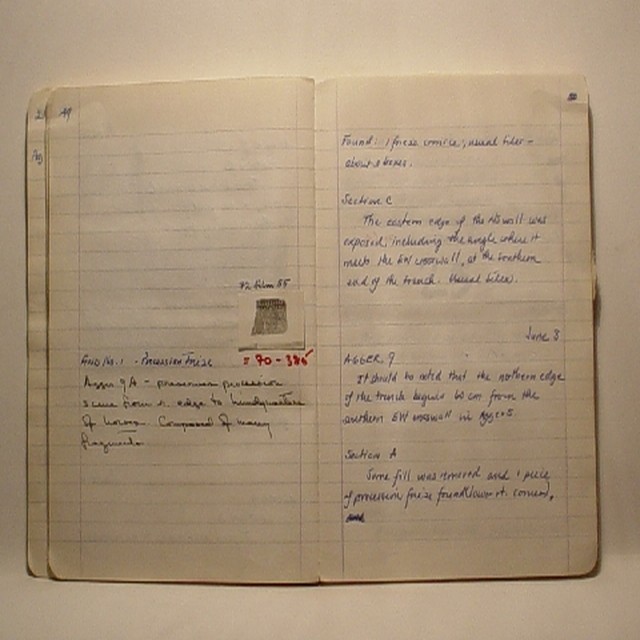 49
72 film 55
Find No. 1 - Procession Frieze = 70-385
Agger 9A - preserves procession
scene from r. edge to hindquarters
of horses. Composed of many
fragments.
50
Found: 1 frieze cornice; usual tiles -
about 2 boxes.
Section C
The eastern edge of the NS wall was
exposed, including the angle where it
meets the EW crosswall, at the southern
end of the trench. Usual tiles.
June 8
AGGER 9
It should be noted that the northern edge
of the trench begins 60 cm from the
southern EW crosswall in Agger 5
Section A
Some fill was removed and 1 piece
of procession frieze found (lower rt. corner).